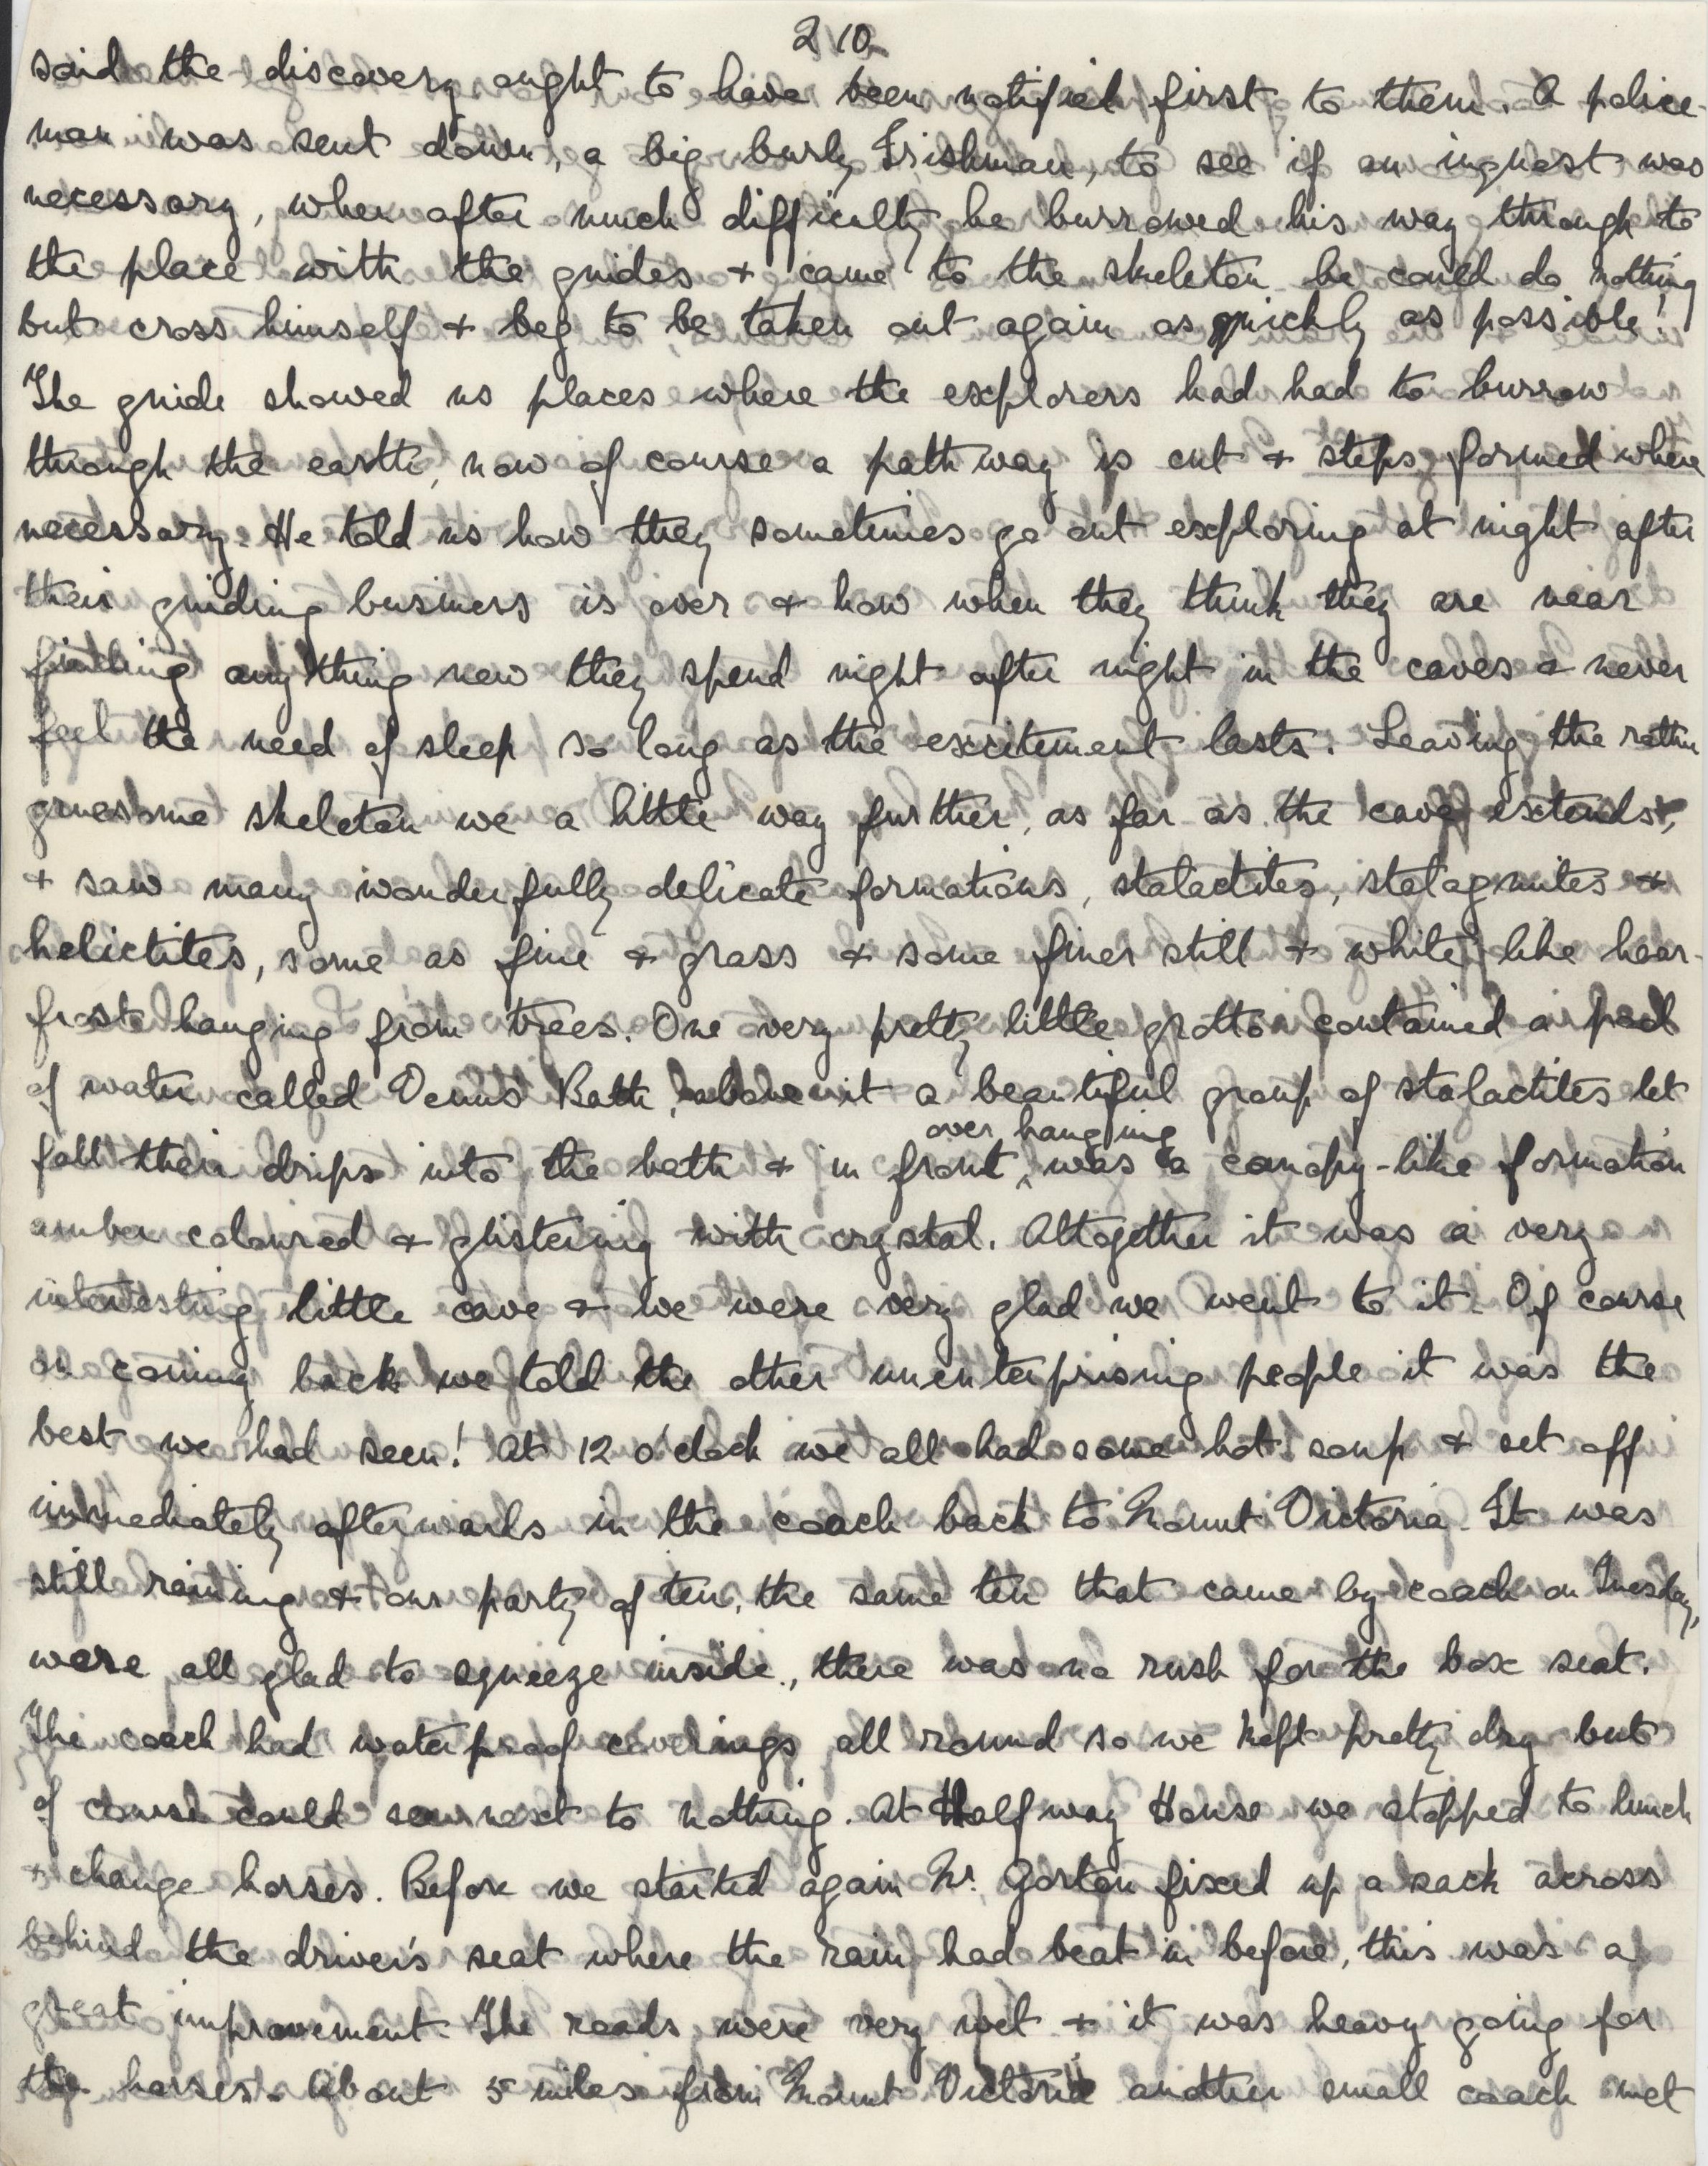 210
said the discovery ought to have been notified first to them. A police-
man was sent down, a big burly Irishman, to see if an inquest was
necessary, when after much difficulty he burrowed his way through to
the place with the guides + came to the skeleton he could do nothing
but cross himself + beg to be taken out again as quickly as possible!
The guide showed us places where the explorers had had to burrow
through the earth, now of course a path way is cut + steps formed where
necessary. He told us how they sometimes go out exploring at night after
their guiding business is over + how when they think they are near
finding anything new they spend night after night in the caves + never
feel the need of sleep so long as the excitement lasts. Leaving the rather
gruesome skeleton we a little way further, as far as the cave extends,
+ saw many wonderfully delicate formations, stalactites, stalagmites +
helictites, some as fine + grass + some finer still + white like hoar-
frost hanging from trees. One very pretty little grotto contained a pool
of water called Venus' Bath, above it a beautiful group of stalactites let
over hanging
fall their drips into the bath + in front was a canopy-like formation
amber coloured + glistening with crystal. Altogether it was a very
interesting little cave + we were very glad we went to it. Of course
on coming back we told the other unenterprising people it was the
best we had seen! At 12 o'clock we all had some hot soup + set off
immediately afterwards in the coach back to Mount Victoria. It was
still raining + our party of ten, the same ten that came by coach on Tuesday,
were all glad to squeeze inside, there was no rush for the box seat.
The coach had waterproof coverings all round so we kept pretty dry but
of course could see next to nothing. At Half way House we stopped to lunch
+ change horses. Before we started again Mr. Gorton fixed up a sack across
behind the driver's seat where the rain had beat in before, this was a
great improvement. The roads were very wet + it was heavy going for
the horses. About 5 miles from Mount Victoria another small coach met